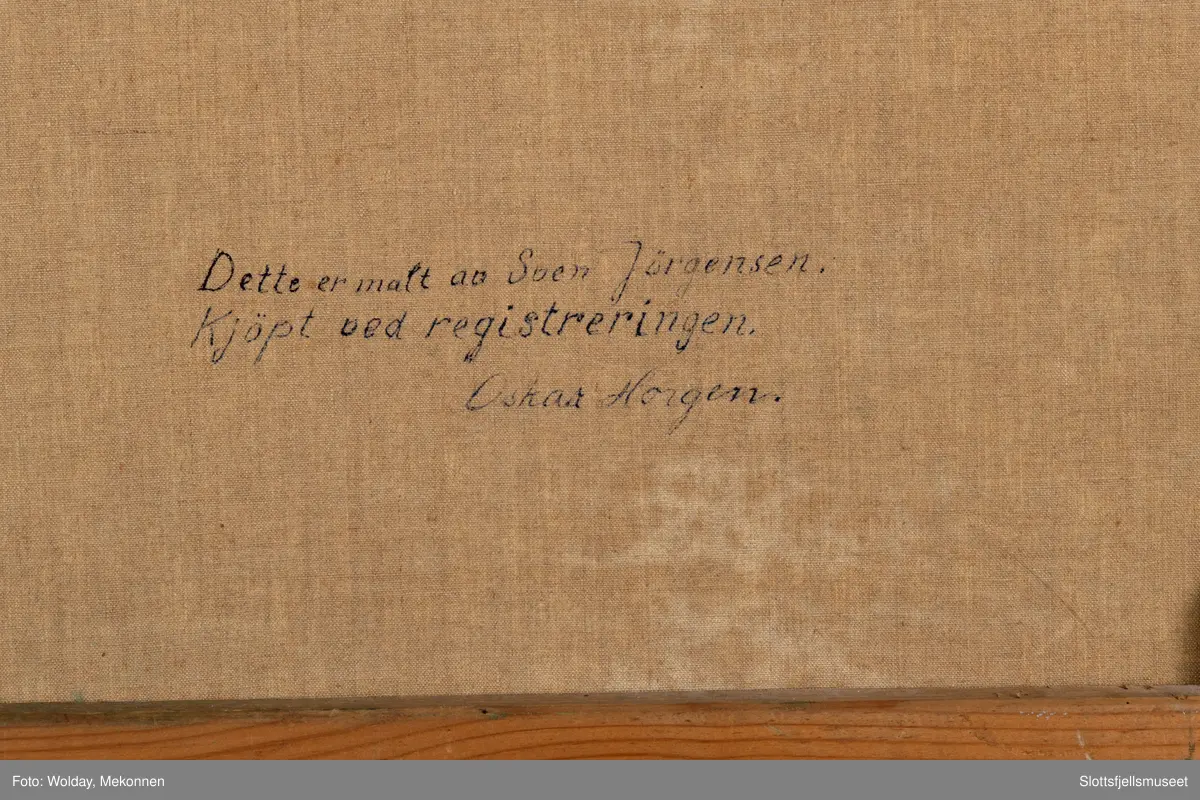 Dette er malt av Sven Jörgensen.
Kjöpt ved registreringen.
Oskar Horgen.
Foto: Wolday, Mekonnen
Slottsfjellsmuseet